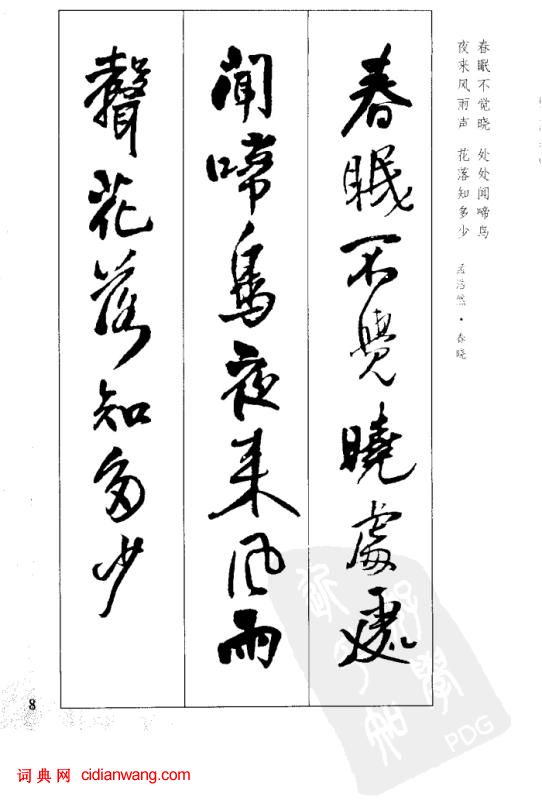 春眠不觉晓 处处闻啼鸟
夜来风雨声 花落知多少 孟浩然·春晓
春眠不覺曉處處
聞啼鳥夜来風雨
聲花落知多少
8
PDG
词典网 cidianwang.com